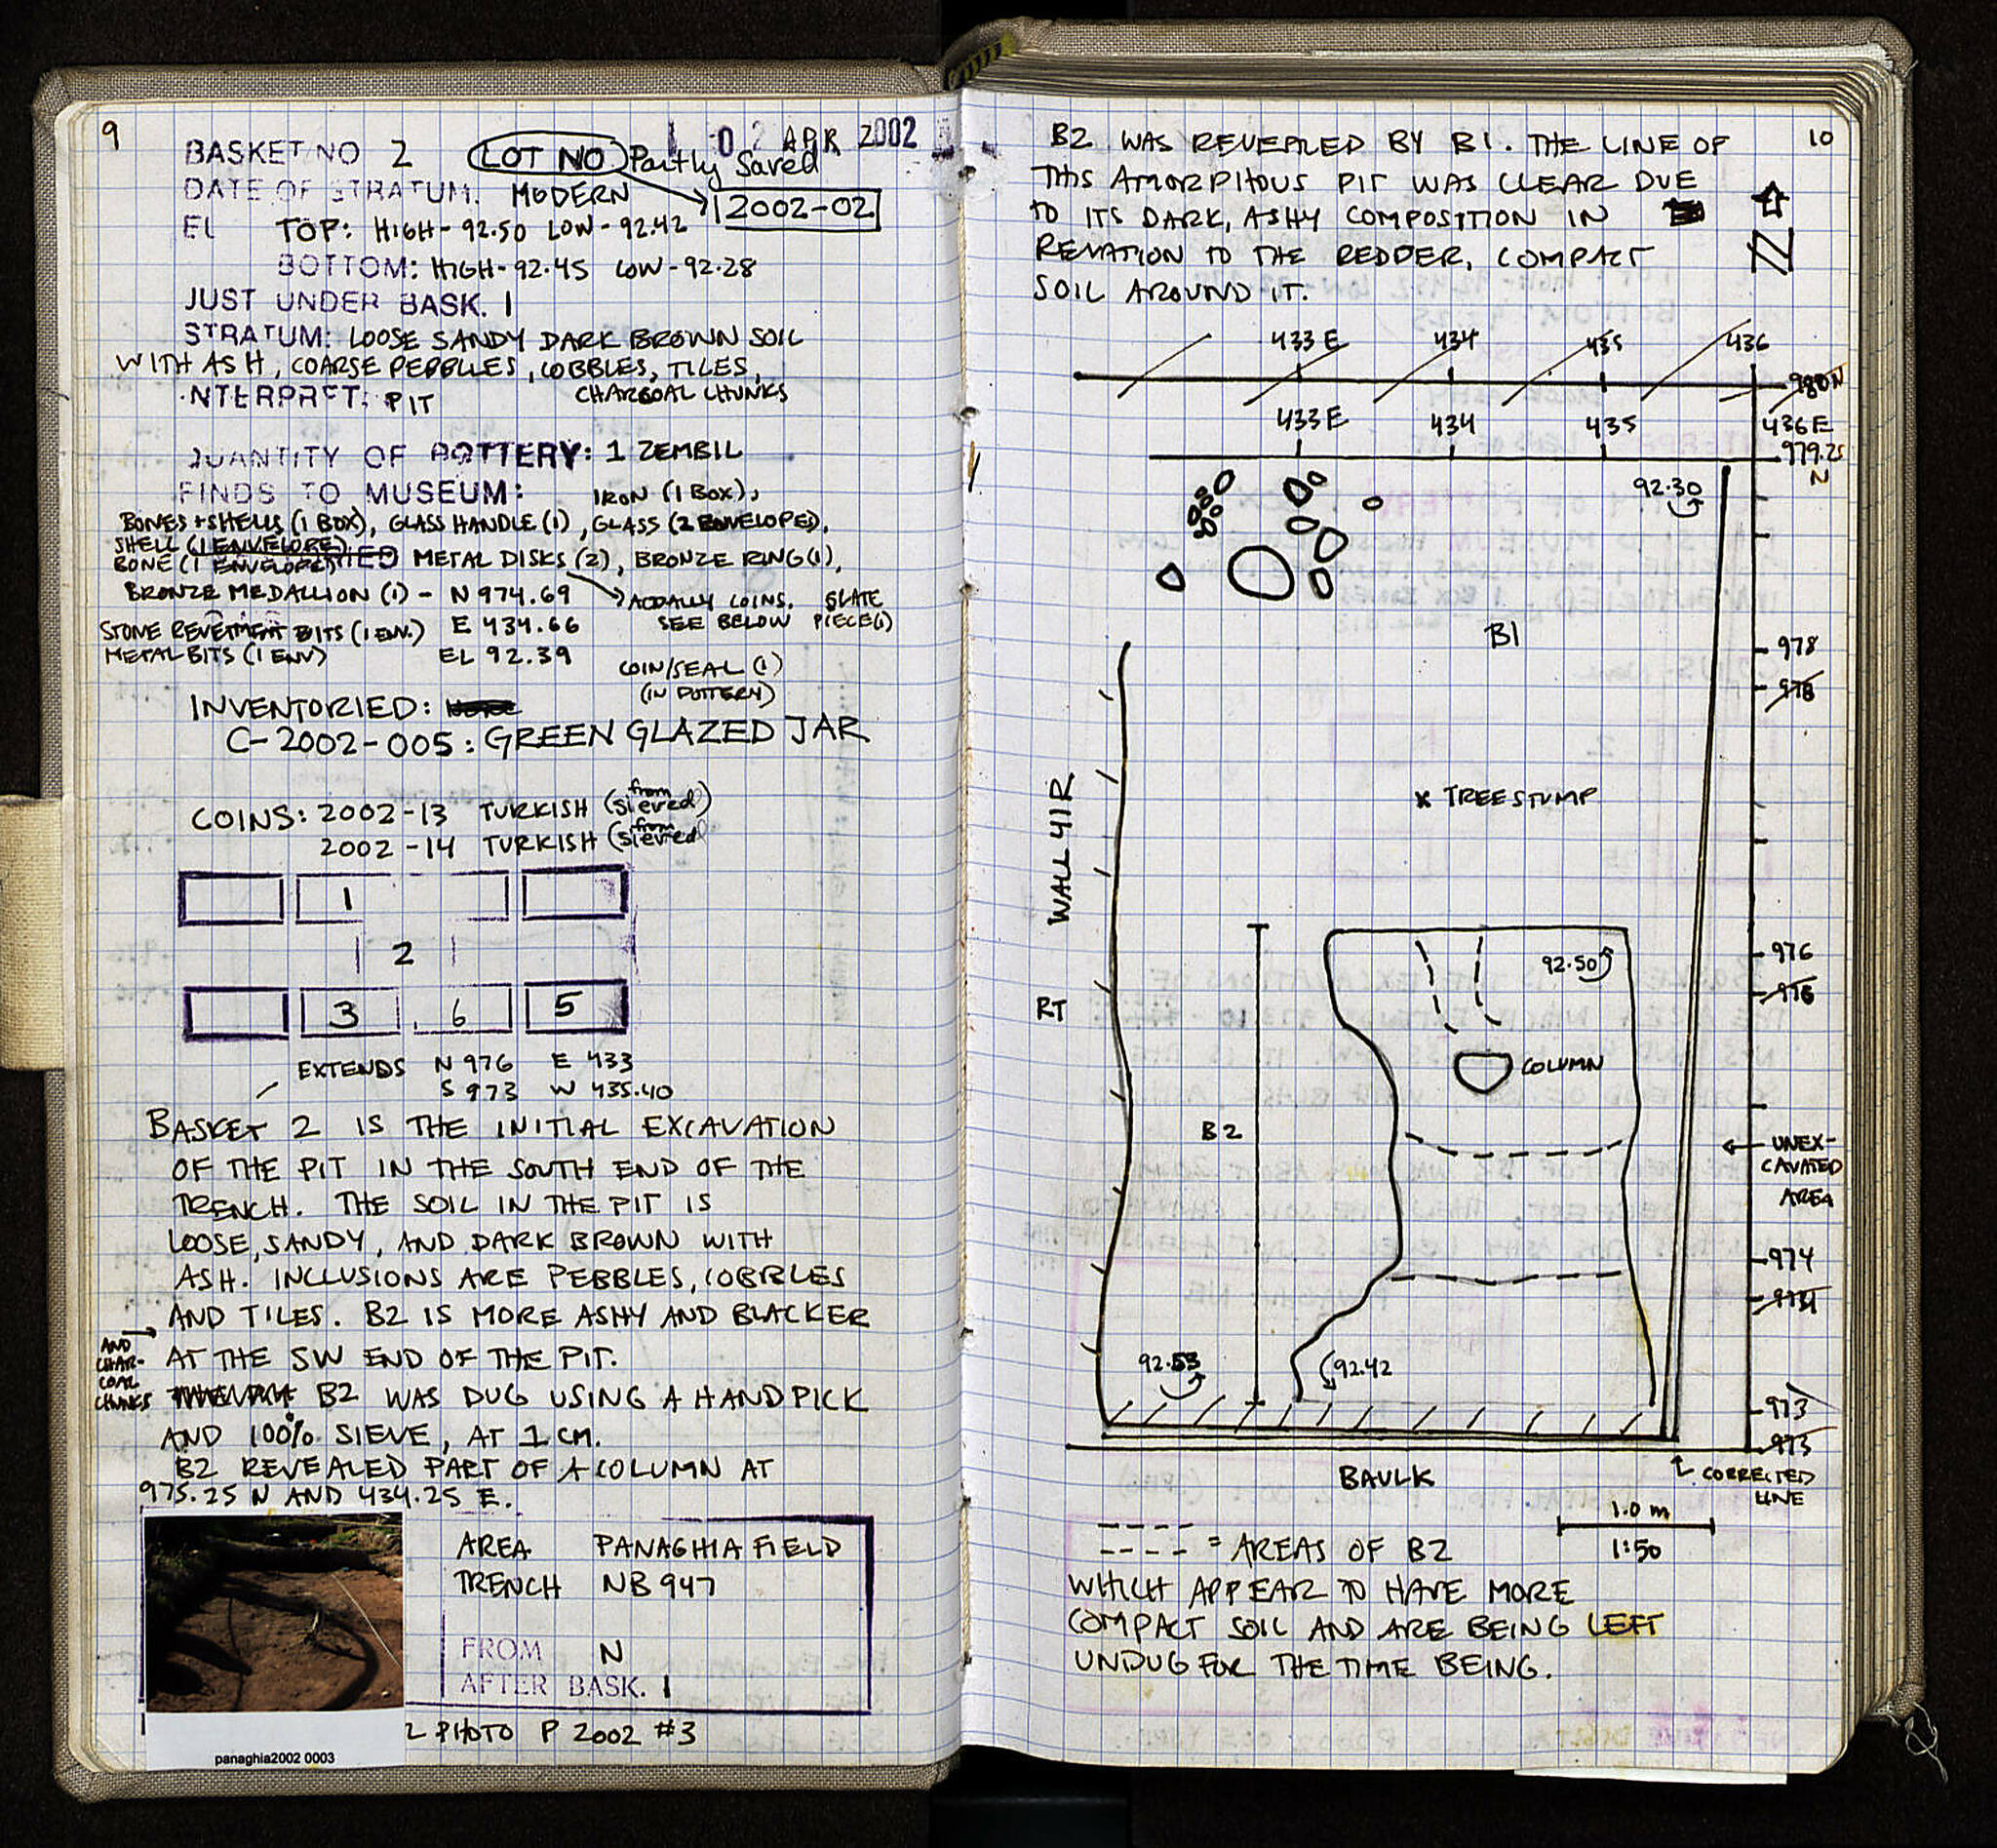 9
02 APR 2002
BASKET NO 2 LOT NO Partly Saved
DATE OF STRATUM: MODERN
2002-02
EL TOP: HIGH-92.50 LOW-92.42
BOTTOM: HIGH-92.45 LOW-92.28
JUST UNDER BASK. 1
STRATUM: LOOSE SANDY DARK BROWN SOIL
WITH ASH, COARSE PEBBLES, COBBLES, TILES,
CHARCOAL CHUNKS
INTERPRET: PIT
QUANTITY OF POTTERY: 1 ZEMBIL
FINDS TO MUSEUM: IRON (1 BOX),
BONES + SHELLS (1 BOX), GLASS HANDLE (1), GLASS (2 ENVELOPE),
SHELL (1 ENVELOPE)
BONE (1 ENVELOPE) METAL DISKS (2), BRONZE RING (1),
BRONZE MEDALLION (1) - N 974.69 ACTUALLY COINS. SLATE
STONE REVETMENT BITS (1 ENV.) E 434.66 SEE BELOW PIECE (1)
METAL BITS (1 ENV) EL 92.39 COIN/SEAL (1)
(IN POTTERY)
INVENTORIED:
C-2002-005: GREEN GLAZED JAR
COINS: 2002-13 TURKISH (from sieved)
2002-14 TURKISH (from sieved)
1
2
3 6 5
EXTENDS N 976 E 433
S 973 W 435.40
BASKET 2 IS THE INITIAL EXCAVATION
OF THE PIT IN THE SOUTH END OF THE
TRENCH. THE SOIL IN THE PIT IS
LOOSE, SANDY, AND DARK BROWN WITH
ASH. INCLUSIONS ARE PEBBLES, COBBLES
AND TILES. B2 IS MORE ASHY AND BLACKER
AND CHARCOAL CHUNKS
AT THE SW END OF THE PIT.
B2 WAS DUG USING A HAND PICK
AND 100% SIEVE, AT 1 CM.
B2 REVEALED PART OF A COLUMN AT
975.25 N AND 434.25 E.
AREA PANAGHIA FIELD
TRENCH NB 947
FROM N
AFTER BASK. 1
L PHOTO P 2002 #3
panaghia2002 0003
10
B2 WAS REVEALED BY B1. THE LINE OF
THIS AMORPHOUS PIT WAS CLEAR DUE
TO ITS DARK, ASHY COMPOSITION IN
RELATION TO THE REDDER, COMPACT
SOIL AROUND IT.
N
433 E 434 435 436
980 N
433 E 434 435 436 E
979.25 N
92.30
B1
978
978
WALL 41R
X TREE STUMP
976
976
92.50
RT
COLUMN
B2
UNEX-
CAVATED
AREA
974
974
92.53
92.42
973
973
BAULK
CORRECTED
LINE
1.0 m
1:50
= AREAS OF B2
WHICH APPEAR TO HAVE MORE
COMPACT SOIL AND ARE BEING LEFT
UNDUG FOR THE TIME BEING.